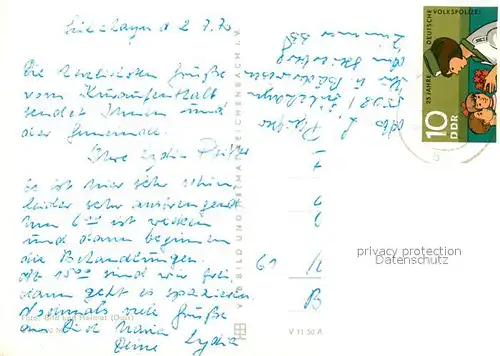 Sülzhayn d 2.7.70
Die herzlichsten Grüße
vom Kuraufenthalt
sendet Ihnen und
der Gemeinde
Ihre Lydia Pfeiffer
Es ist hier sehr schön,
leider sehr anstrengend
um 6 00 ist wecken
und dann beginnen
die Behandlungen.
Ab 15 00 sind wir frei
dann geht es spazieren.
Nochmals viele Grüße
an Dich Maria
Deine Lydia
Foto: Bild und Heimat
VEB BILD UND HEIMAT REICHENBACH I. V.
V 11 50 A
Abs L. Pfeiffer
5508 Sülzhayn
Zimmer
25 JAHRE DEUTSCHE VOLKSPOLIZEI
10
DDR
privacy protection
Datenschutz